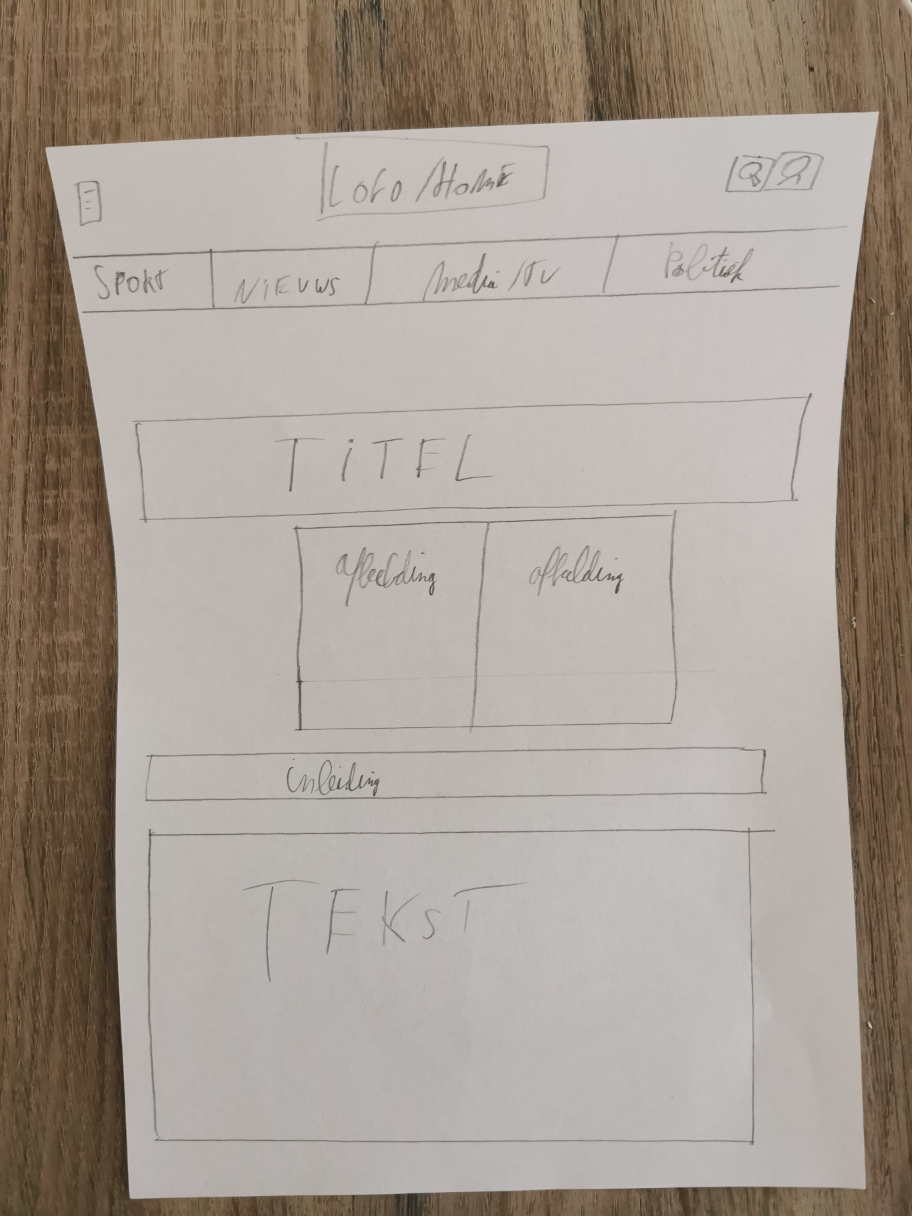 Logo/HOME
SPORT NiEUWS Media/TV Politiek
TiTEL
afbeelding afbeelding
inleiding
TEKST